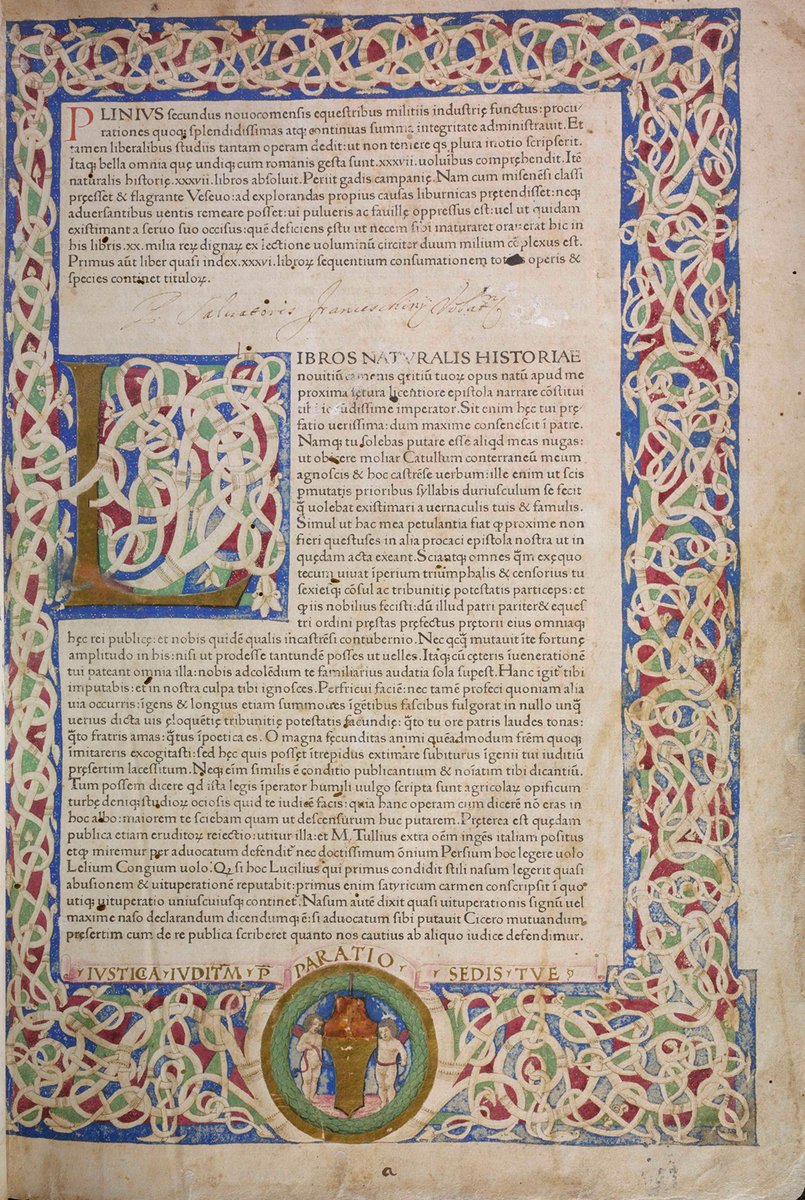 PLINIVS secundus nouocomensis equestribus militiis industrię functus: procu/
rationes quoq; splendidissimas atq; continuas summa integritate administrauit. Et
tamen liberalibus studiis tantam operam dedit: ut non temere qs plura in otio scripserit.
Itaq; bella omnia quę undiq; cum romanis gesta sunt .xxxvii. uoluibus compręhendit. Itē
naturalis historię .xxxvii. libros absoluit. Periit gadis campanię. Nam cum misenēsi classi
pręesset & flagrante Veseuo: ad explorandas propius causas liburnicas prętendisset: neq;
aduersantibus uentis remeare posset: ui pulueris ac fauillę oppressus est: uel ut quidam
existimant a seruo suo occisus: quē deficiens ęstu ut necem sibi maturaret orauerat hic in
his libris .xx. milia reꝝ dignaꝝ ex lectione uoluminū circiter duum milium cōplexus est.
Primus aūt liber quasi index .xxxvi. libroꝝ sequentium consumationem operis &
species continet tituloꝝ.
Saluatoris
LIBROS NATVRALIS HISTORIAE
nouitiū camenis qritiū tuoꝝ opus natū apud me
proxima fętura licentiore epistola narrare cōstitui
tibi iocūdissime imperator. Sit enim hęc tui prę
fatio uerissima: dum maxime consenescit ī patre.
Namq; tu solebas putare esse aliqd meas nugas:
ut obiicere moliar Catullum conterraneū meum
agnoscis & hoc castrēse uerbum: ille enim ut scis
pmutatis prioribus syllabis duriusculum se fecit
q̄ uolebat existimari a uernaculis tuis & famulis.
Simul ut hac mea petulantia fiat qꝫ proxime non
fieri questus es in alia procaci epistola nostra ut in
quędam acta exeant. Sciantq; omnes q̄m exęquo
tecum uiuat īperium triūmphalis & censorius tu
sexiesq; cōsul ac tribunitię potestatis particeps: et
qꝫ iis nobilius fecisti: dū illud patri pariter & eques
tri ordini pręstas pręfectus prętorii eius omniaq;
hęc rei publicę: et nobis quidē qualis in castrēsi contubernio. Nec qcq̄ mutauit īte fortunę
amplitudo in his: nisi ut prodesse tantundē posses ut uelles. Itaq; cū cęteris ī uenerationē
tui pateant omnia illa: nobis ad colēdum te familiarius audatia sola supest. Hanc igit̃ tibi
imputabis: et in nostra culpa tibi ignosces. Perfricui faciē: nec tamē profeci quoniam alia
uia occurris: īgens & longius etiam summoues īgētibus fascibus fulgorat in nullo unq̄
uerius dicta uis ęloquētię tribunitię potestatis facundię: q̄to tu ore patris laudes tonas:
q̄to fratris amas: q̄tus ī poetica es. O magna fęcunditas animi quēadmodum frēm quoq;
imitareris excogitasti: sed hęc quis posset ītrepidus extimare subiturus īgenii tui iuditiū
pręsertim lacessitum. Neq; eīm similis ē conditio publicantium & noīatim tibi dicantiū.
Tum possem dicere qd ista legis īperator humili uulgo scripta sunt agricolaꝝ opificum
turbę deniq; studioꝝ ociosis quid te iudicē facis: quia hanc operam cum dicerē nō eras in
hoc albo: maiorem te sciebam quam ut descensurum huc putarem. Pręterea est quędam
publica etiam eruditoꝝ reiectio: utitur illa: et M. Tullius extra oēm ingēs italiam positus
etq; miremur per aduocatum defendit̃ nec doctissimum ōnium Persium hoc legere uolo
Lelium Congium uolo: Qꝫ si hoc Lucilius qui primus condidit stili nasum legerit quasi
abusionem & uituperationē reputabit: primus enim satyricum carmen conscripsit ī quo
utiq; uituperatio uniuscuiusq; continet̃. Nasum autē dixit quasi uituperationis signū uel
maxime naso declarandum dicendumq; ē: si aduocatum sibi putauit Cicero mutuandum
pręsertim cum de re publica scriberet quanto nos cautius ab aliquo iudice defendimur.
IVSTICIA IVDITM P̄PARATIO SEDIS TVE
a